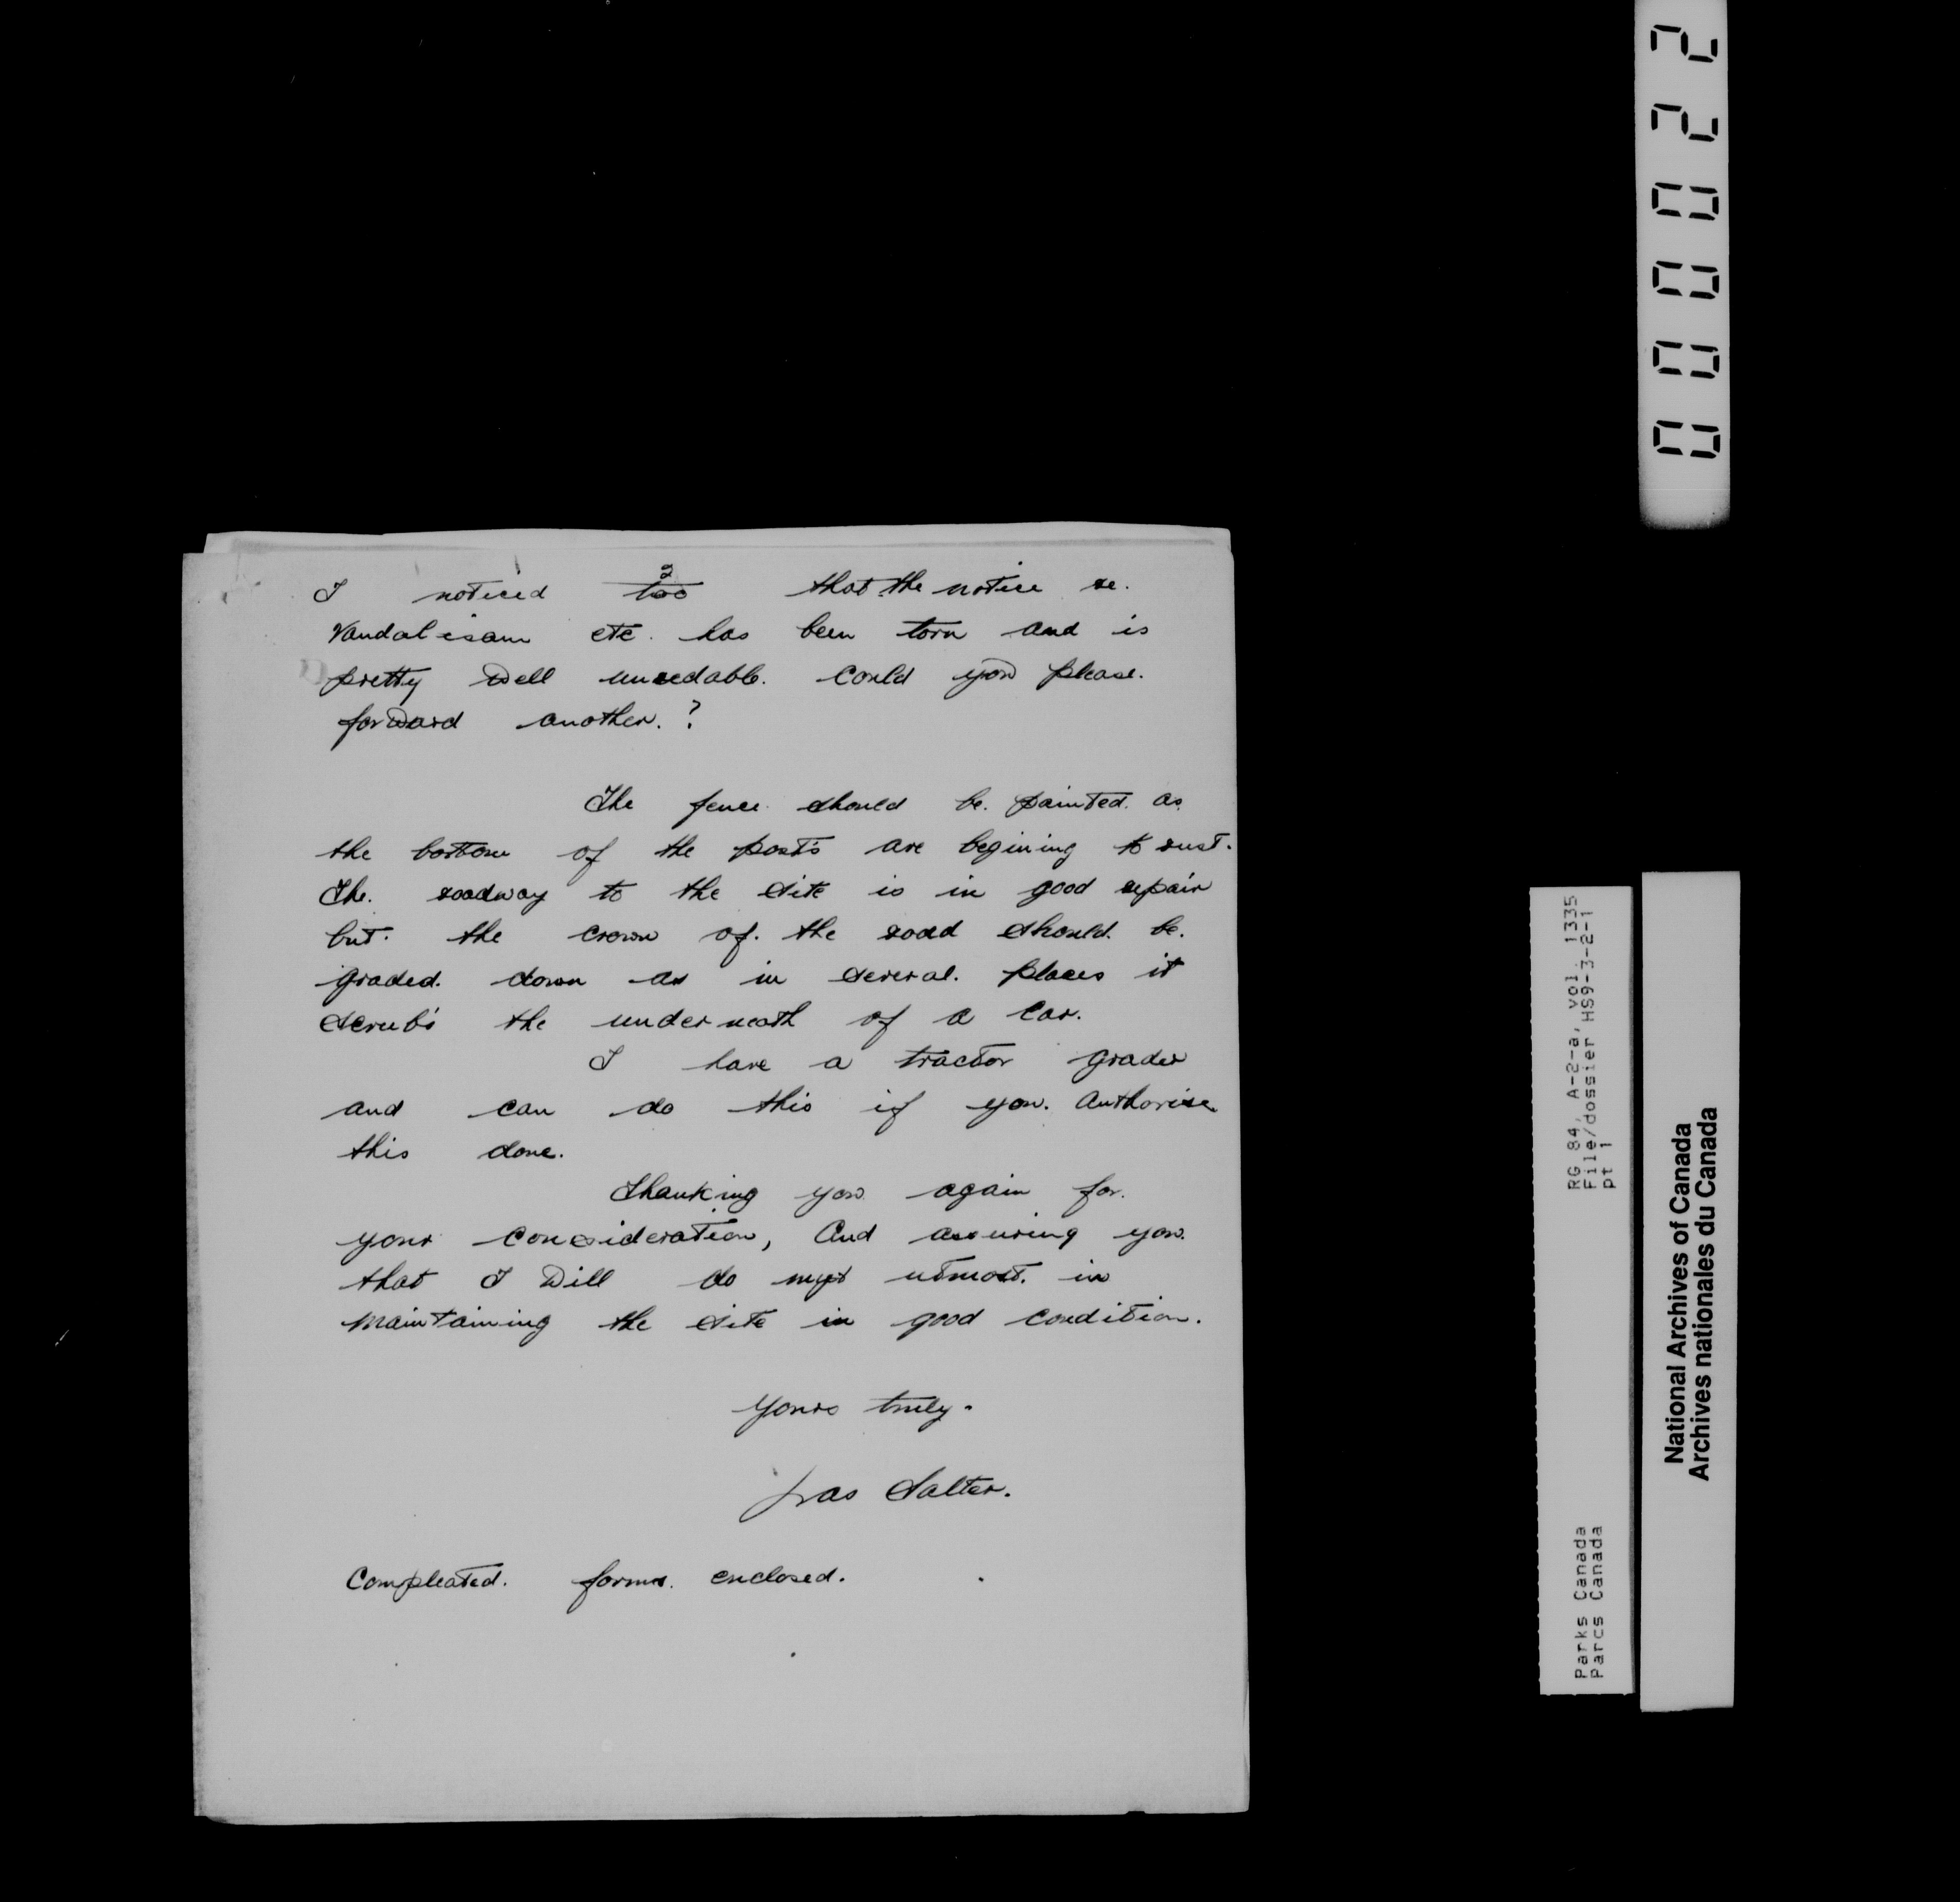 2
I noticed too that the notice re.
Vandalisam etc. has been torn and is
pretty well unredable. Could you please.
forward another. ?
The fence should be. painted. as.
the bottom of the post's are begining to rust.
The. roadway to the site is in good repair
but. the crown of. the road should. be.
graded. down as in several. places it
scrub's the underneath of a car.
I have a tractor grader
and can do this if you. Authorise.
this done.
Thanking you. again for.
your consideration, And assuring you.
that I will do my utmost. in
maintaining the site in good condition.
Yours truly.
Jas Salter.
Compleated. forms. enclosed.
000022
RG 84, A-2-a, vol. 1335
File/dossier HS9-3-2-1
pt 1
Parks Canada
Parcs Canada
National Archives of Canada
Archives nationales du Canada